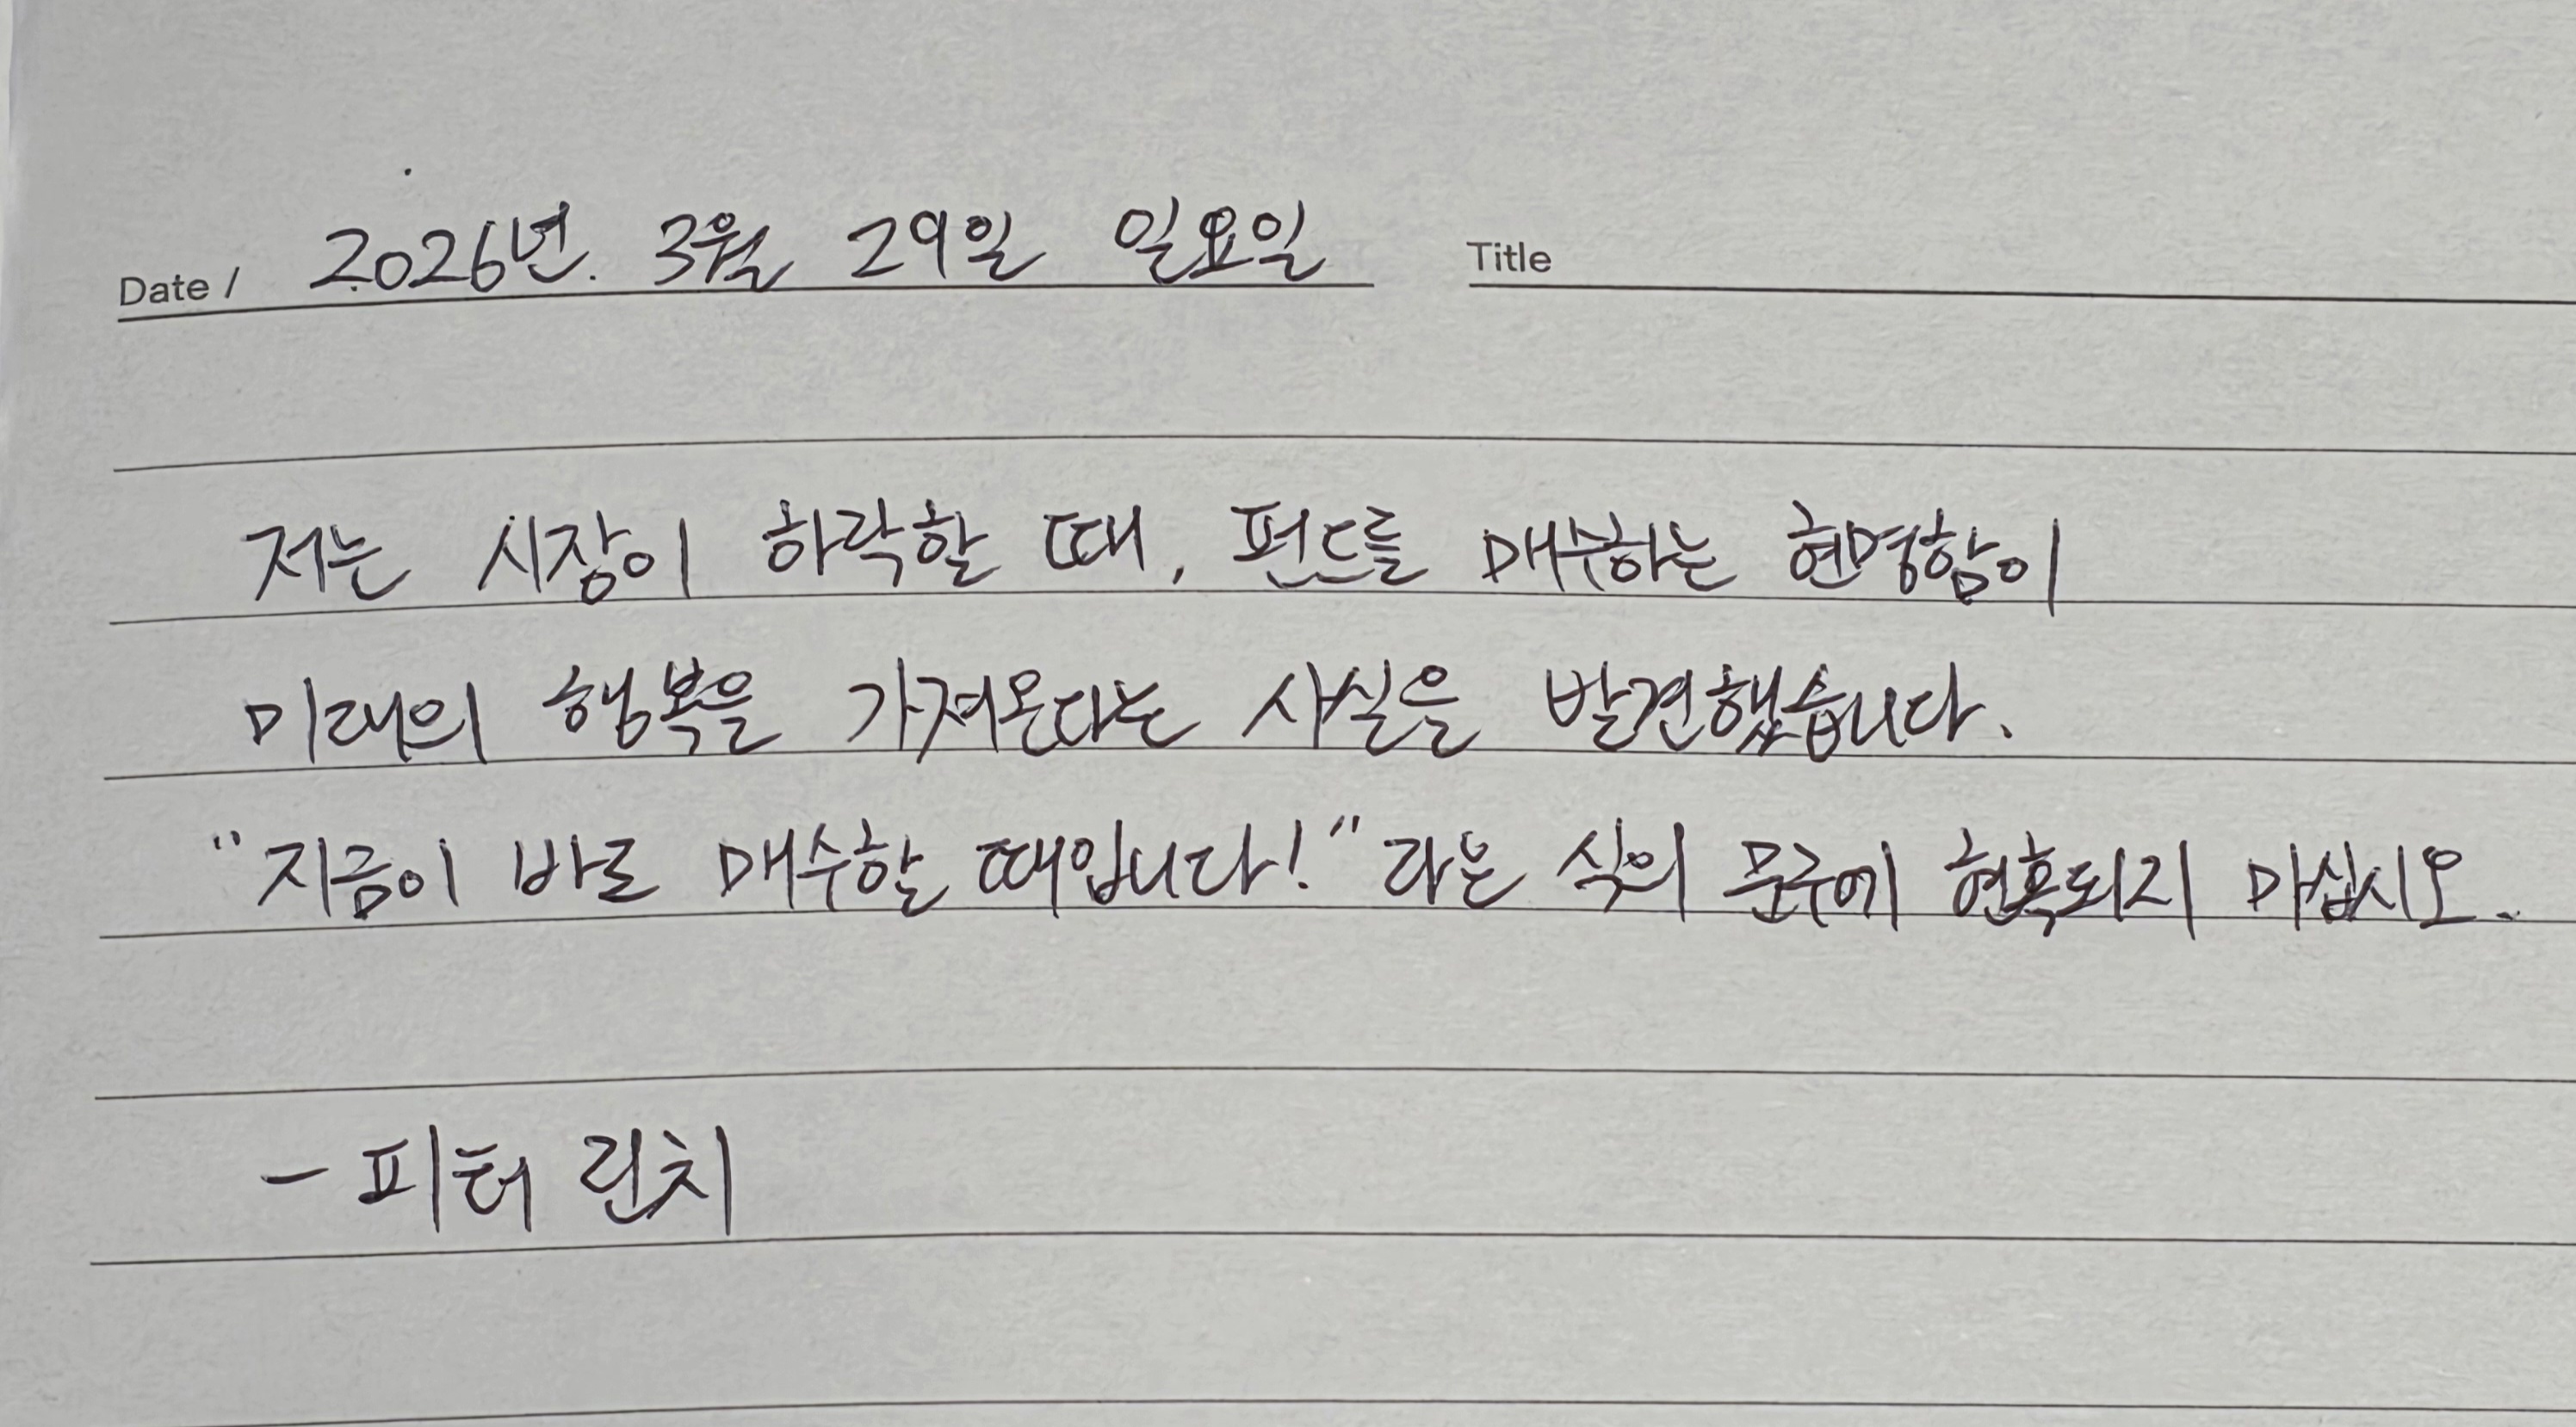 Date / 2026년. 3월 29일 일요일 Title
저는 시장이 하락할 때, 펀드를 매수하는 현명함이
미래의 행복을 가져온다는 사실을 발견했습니다.
"지금이 바로 매수할 때입니다!" 라는 식의 문구에 현혹되지 마십시오.
- 피터 린치